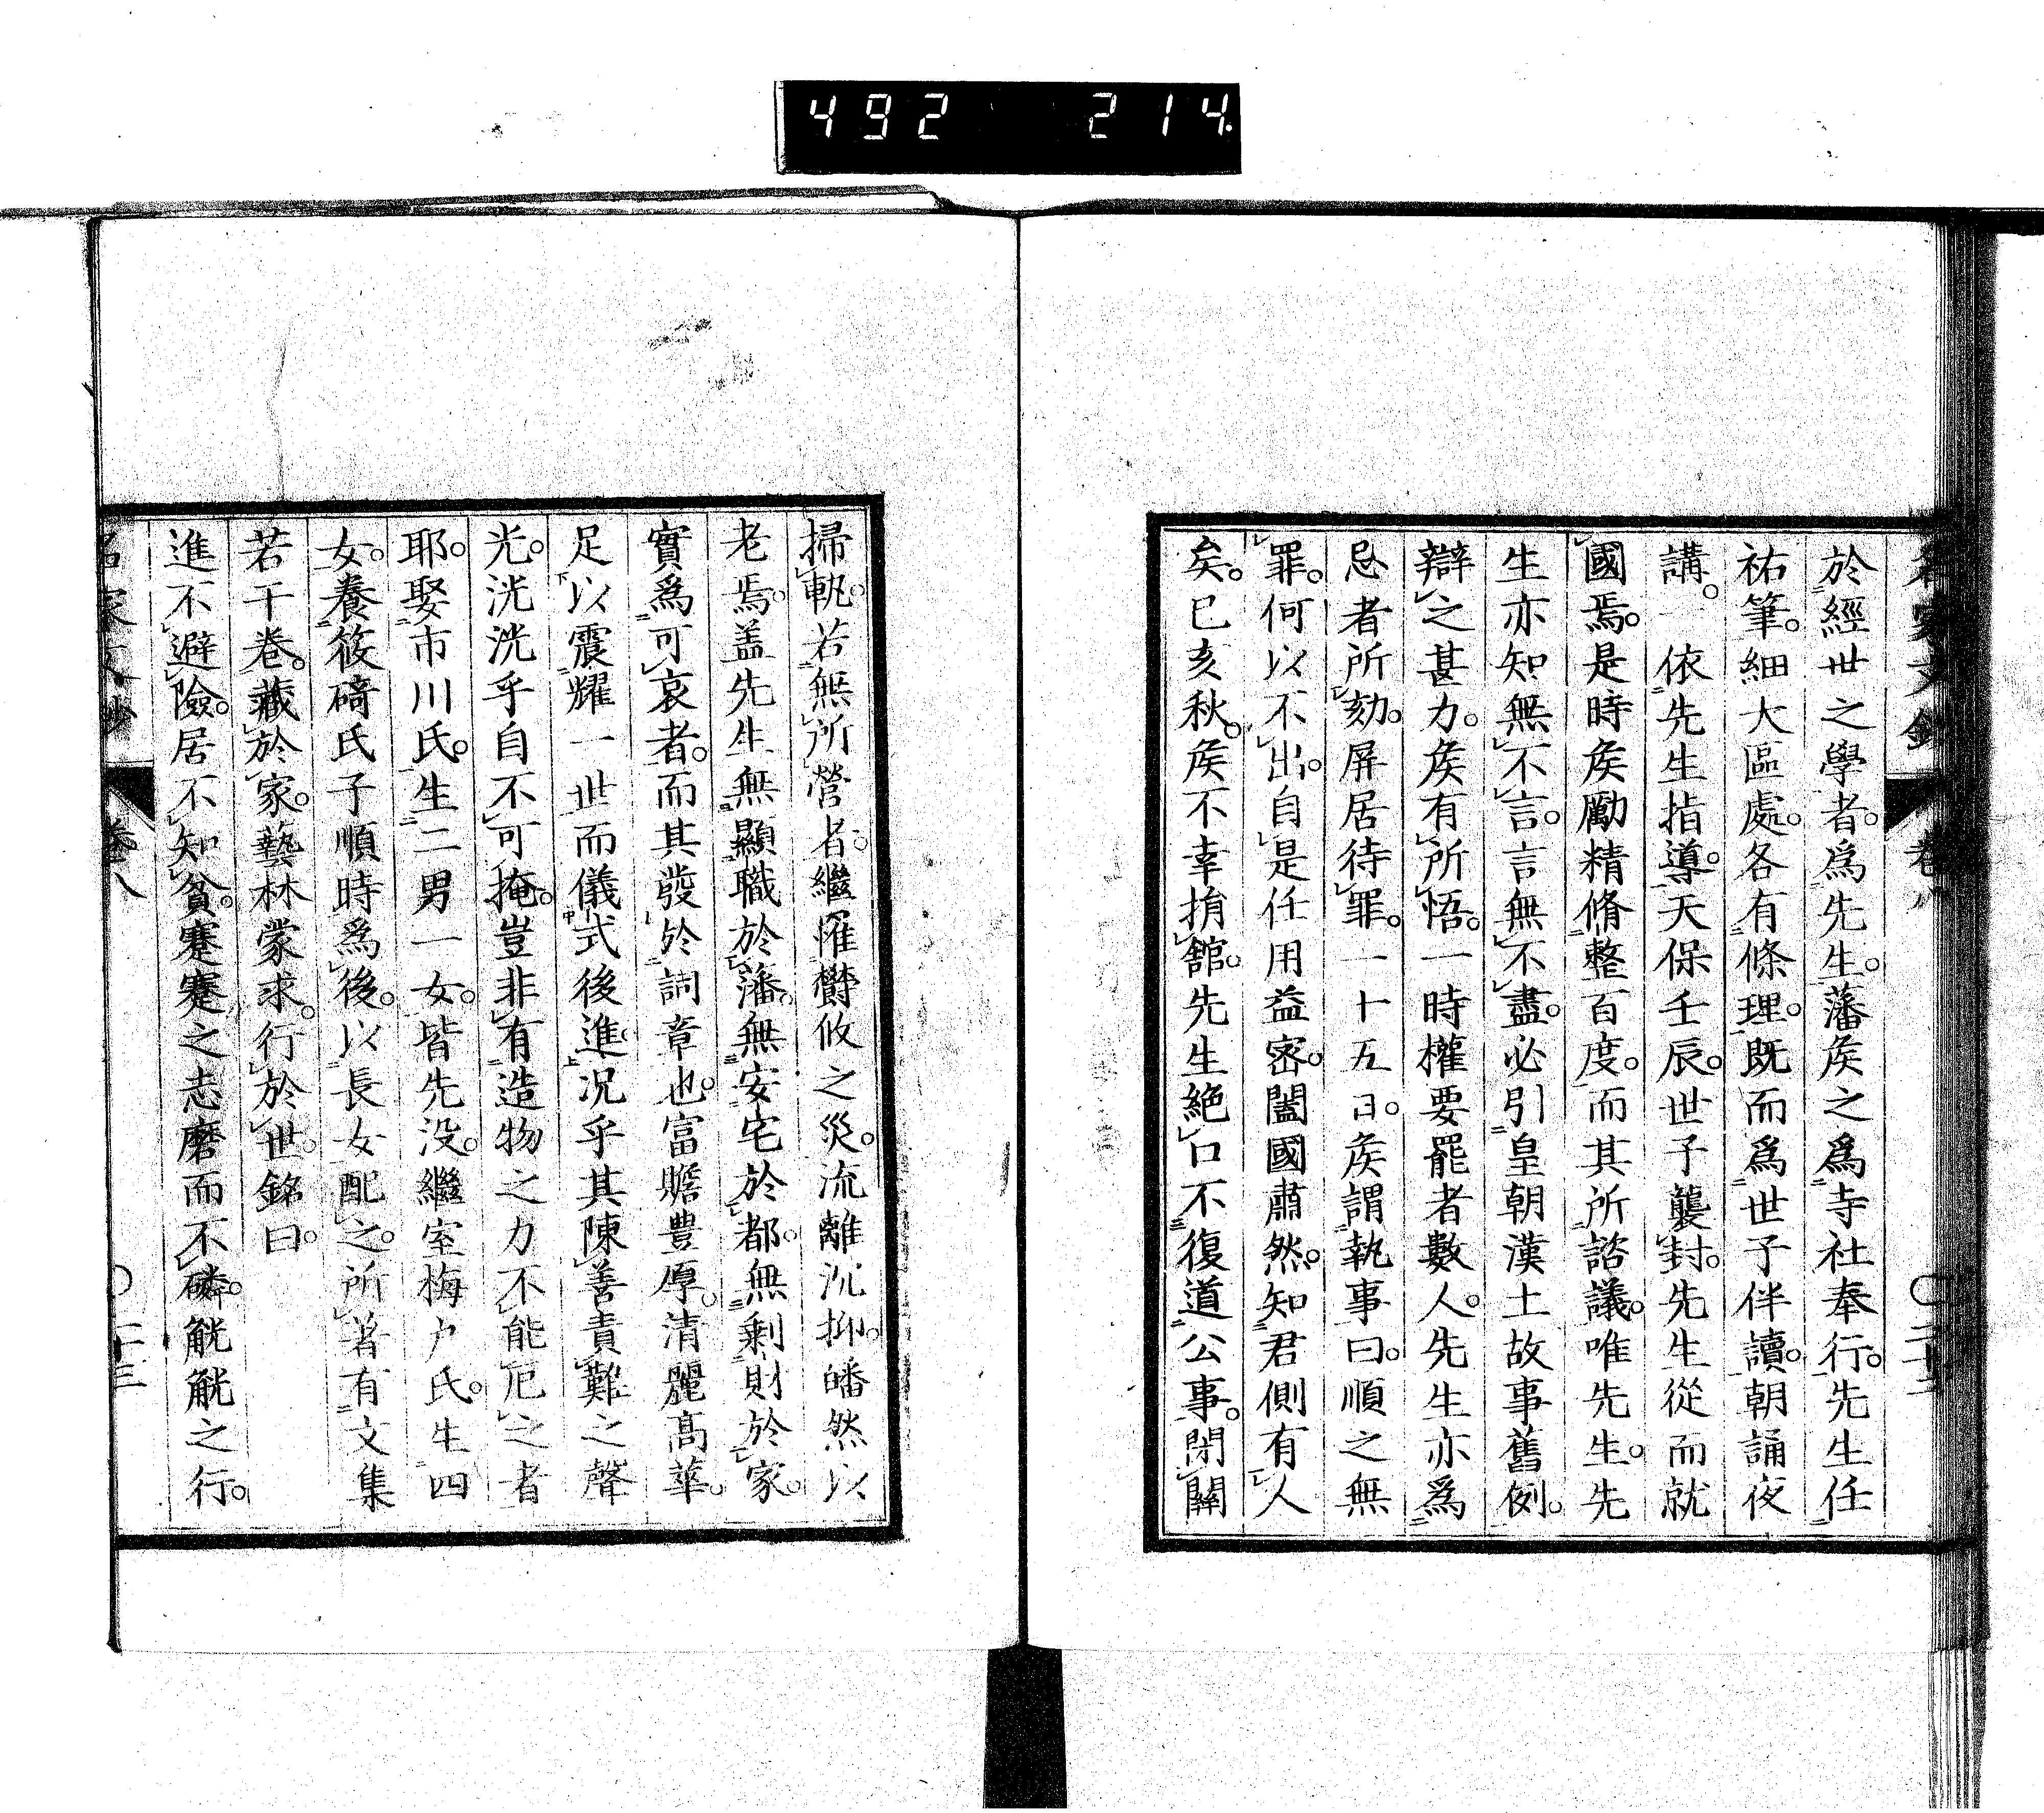 492 214
名家文鈔 卷八 〇二十三
於經世之學者。爲先生。藩矦之爲寺社奉行。先生任
祐筆。細大區處。各有條理。既而爲世子伴讀。朝誦夜
講。一依先生指導。天保壬辰。世子襲封。先生從而就
國焉。是時矦勵精脩整百度。而其所諮議。唯先生。先
生亦知無不言。言無不盡。必引皇朝漢土故事舊例。
辯之甚力。矦有所悟。一時權要罷者數人。先生亦爲
忌者所劾。屏居待罪。一十五日。矦謂執事曰。順之無
罪。何以不出。自是任用益密。闔國肅然。知君側有人
矣。已亥秋。矦不幸捐舘。先生絶口不復道公事。閉關
掃軌。若無所營者。繼罹欝攸之災。流離沉抑。皤然以
老焉。盖先生無顯職於藩。無安宅於都。無剩財於家。
實爲可哀者。而其發於詞章也。富贍豊厚。清麗高華。
足以震耀一世而儀式後進。况乎其陳善責難之聲
光。洸洸乎自不可掩。豈非有造物之力不能厄之者
耶。娶市川氏。生二男一女。皆先没。繼室梅户氏。生四
女。養筱碕氏子順時爲後。以長女配之。所著有文集
若干卷。藏於家。藝林蒙求。行於世。銘曰。
進不避險。居不知貧。蹇蹇之志磨而不磷。觥觥之行。
名家文鈔 卷八 〇二十三